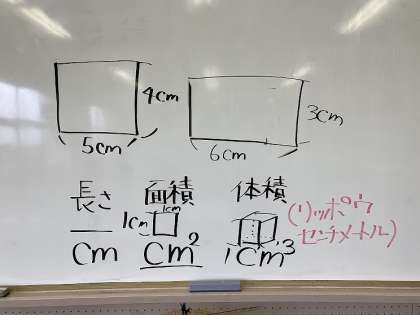 4cm
5cm
3cm
6cm
長さ
cm
面積
1cm
1cm
cm²
体積
1cm³
(リッポウ
センチメートル)